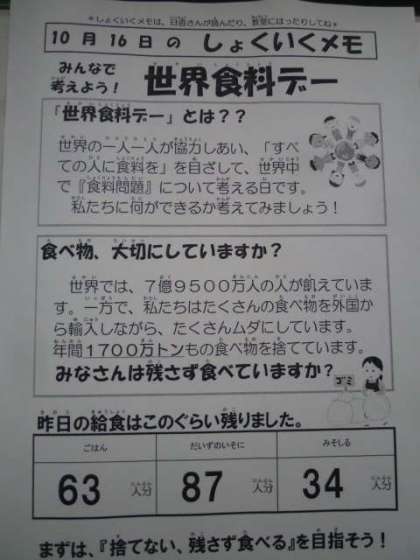 ＊しょくいくメモは、日直さんが読んだり、教室にはったりしてね＊
10月16日の しょくいくメモ
みんなで
考えよう！ 世界食料デー
「世界食料デー」とは？？
世界の一人一人が協力しあい、「すべ
ての人に食料を」を目ざして、世界中
で『食料問題』について考える日です。
私たちに何ができるか考えてみましょう！
食べ物、大切にしていますか？
世界では、7億9500万人の人が飢えていま
す。一方で、私たちはたくさんの食べ物を外国か
ら輸入しながら、たくさんムダにしています。
年間1700万トンもの食べ物を捨てています。
みなさんは残さず食べていますか？
ゴミ
昨日の給食はこのぐらい残りました。
ごはん だいずのいそに みそしる
63人分 87人分 34人分
まずは、『捨てない、残さず食べる』を目指そう！